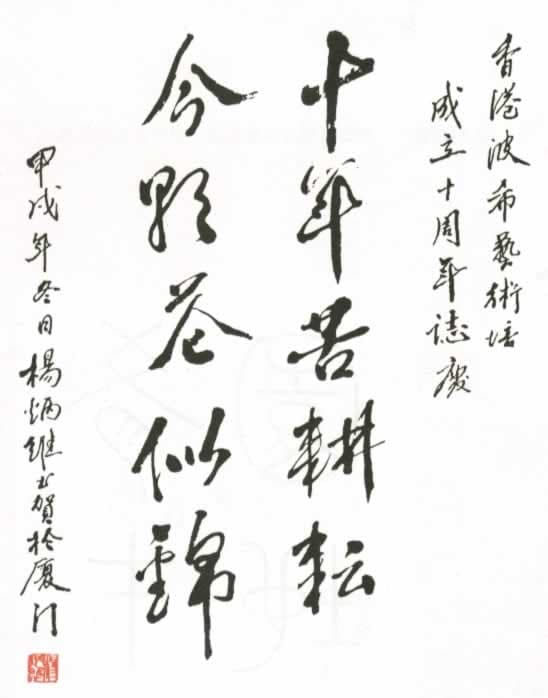 香港波希藝術培
成立十周年誌慶
十年苦耕耘
今點花似錦
甲戌年冬日楊炳維書賀於廈门